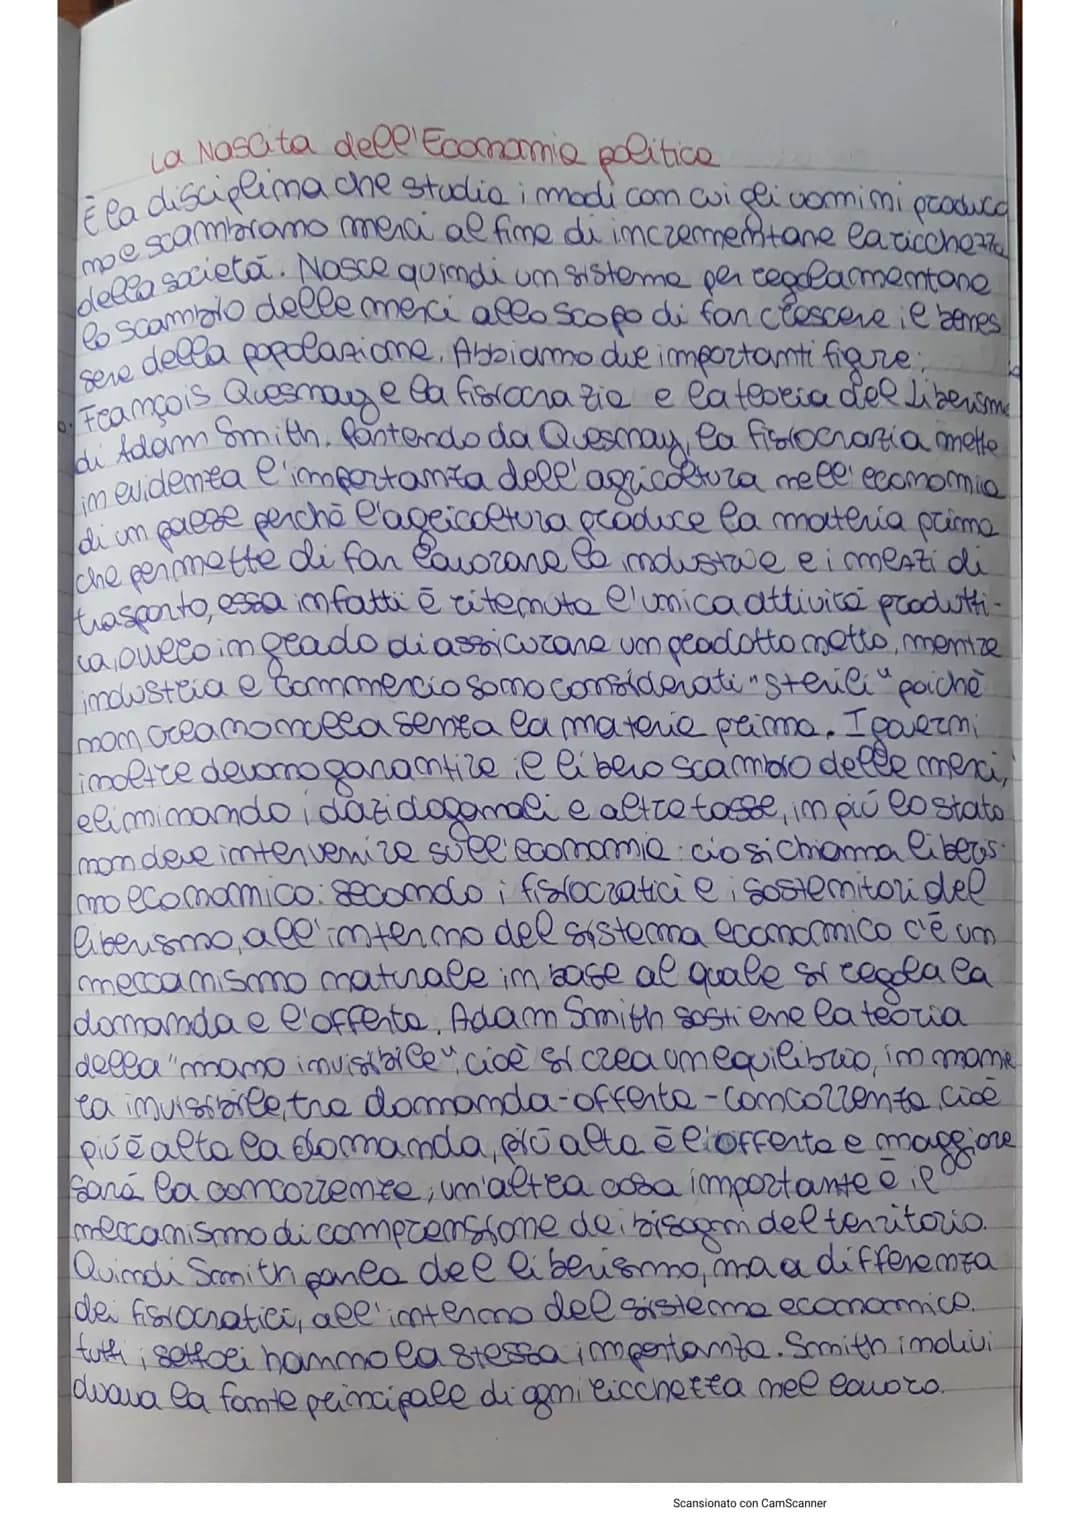 La Nascita dell'Economia politica
È la disciplina che studia i modi con cui gli uomini produco
no e scambiano merci al fine di incrementare la ricchezza
della società. Nasce quindi un sistema per regolamentare
lo scambio delle merci allo scopo di far crescere il benes
sere della popolazione. Abbiamo due importanti figure:
François Quesnay e la fisiocrazia e la teoria del liberismo
di Adam Smith. Partendo da Quesnay, la fisiocrazia mette
in evidenza l'importanza dell'agricoltura nell'economia
di un paese perchè l'agricoltura produce la materia prima
che permette di far lavorare le industrie e i mezzi di
trasporto, essa infatti è ritenuta l'unica attività produtti-
va, ovvero in grado di assicurare un prodotto netto, mentre
industria e commercio sono considerati "sterili" poichè
non creano nulla senza la materia prima. I governi
inoltre devono garantire il libero scambio delle merci,
eliminando i dazi doganali e altre tasse, in più lo stato
non deve intervenire sull'economia: ciò si chiama liberis-
mo economico: secondo i fisiocratici e i sostenitori del
liberismo, all'interno del sistema economico c'è un
meccanismo naturale in base al quale si regola la
domanda e l'offerta. Adam Smith sostiene la teoria
della "mano invisibile", cioè si crea un equilibrio, in manie
ra invisibile, tra domanda-offerta-concorrenza, cioè
più è alta la domanda, più alta è l'offerta e maggiore
sarà la concorrenza; un'altra cosa importante è il
meccanismo di comprensione dei bisogni del territorio.
Quindi Smith parla del liberismo, ma a differenza
dei fisiocratici, all'interno del sistema economico.
tutti i settori hanno la stessa importanza. Smith indivi
duava la fonte principale di ogni ricchezza nel lavoro.
Scansionato con CamScanner